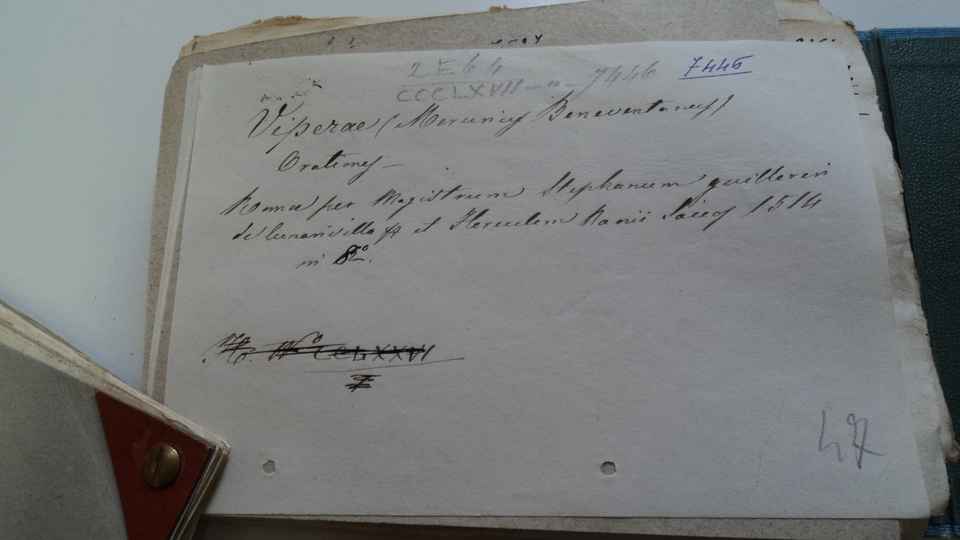 2 E 6 4
CCCLXVII — 7446 7446
Viperae (Mercurius Beneventanus)
Orationes
Romae per Magistrum Stephanum guillereri
de lunarivilla et Herculem Nanii Socios 1514
in 8º.
Nº CCLXXVI
47